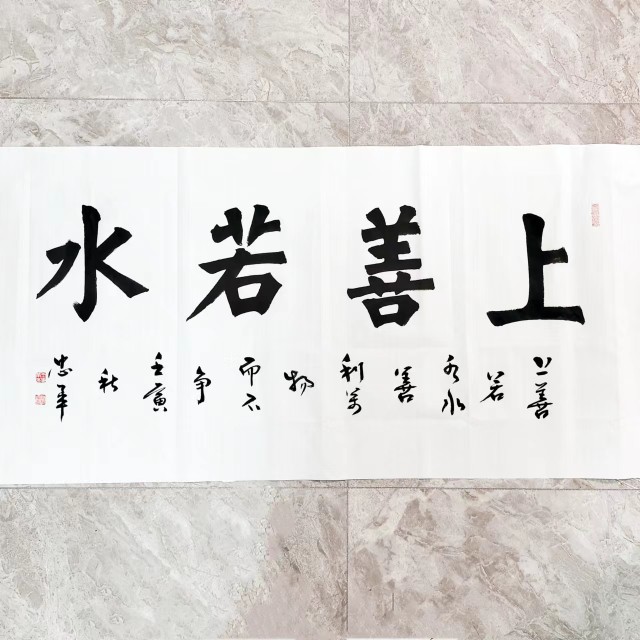 上善若水
上善
若
水水
善
利萬
物
而不
争
壬寅
秋
忠